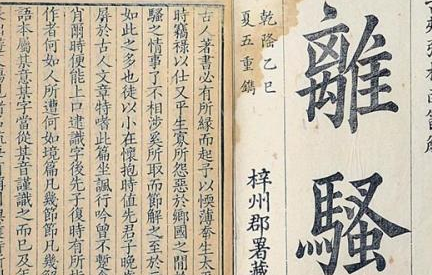 離騷
乾隆乙巳
夏五重鐫
梓州郡署藏
古人著書必有所緣而起予以薄生太
時祿以仕又平生寡所怨惡於鄉國之間
騷之情事了不相涉奚所取而節解之至於
如此之多也徒以小在懷抱時値先君子晚
屏於古人文章特嗜此篇坐諷行吟曾不暫
肖爾時便能上口逮識字後先子復時有所指
作者何如人所遭何如境篇凡幾節節凡幾
語本屬某意某字當從某音謹識之而已及年